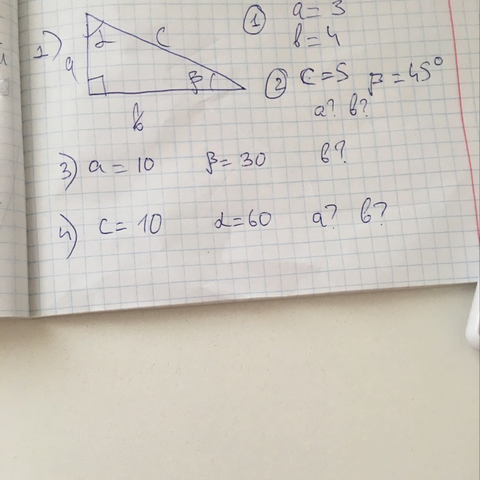 1) α c a β b
① a = 3
b = 4
② c = 5 β = 45°
a? b?
3) a = 10 β = 30 b?
4) c = 10 α = 60 a? b?